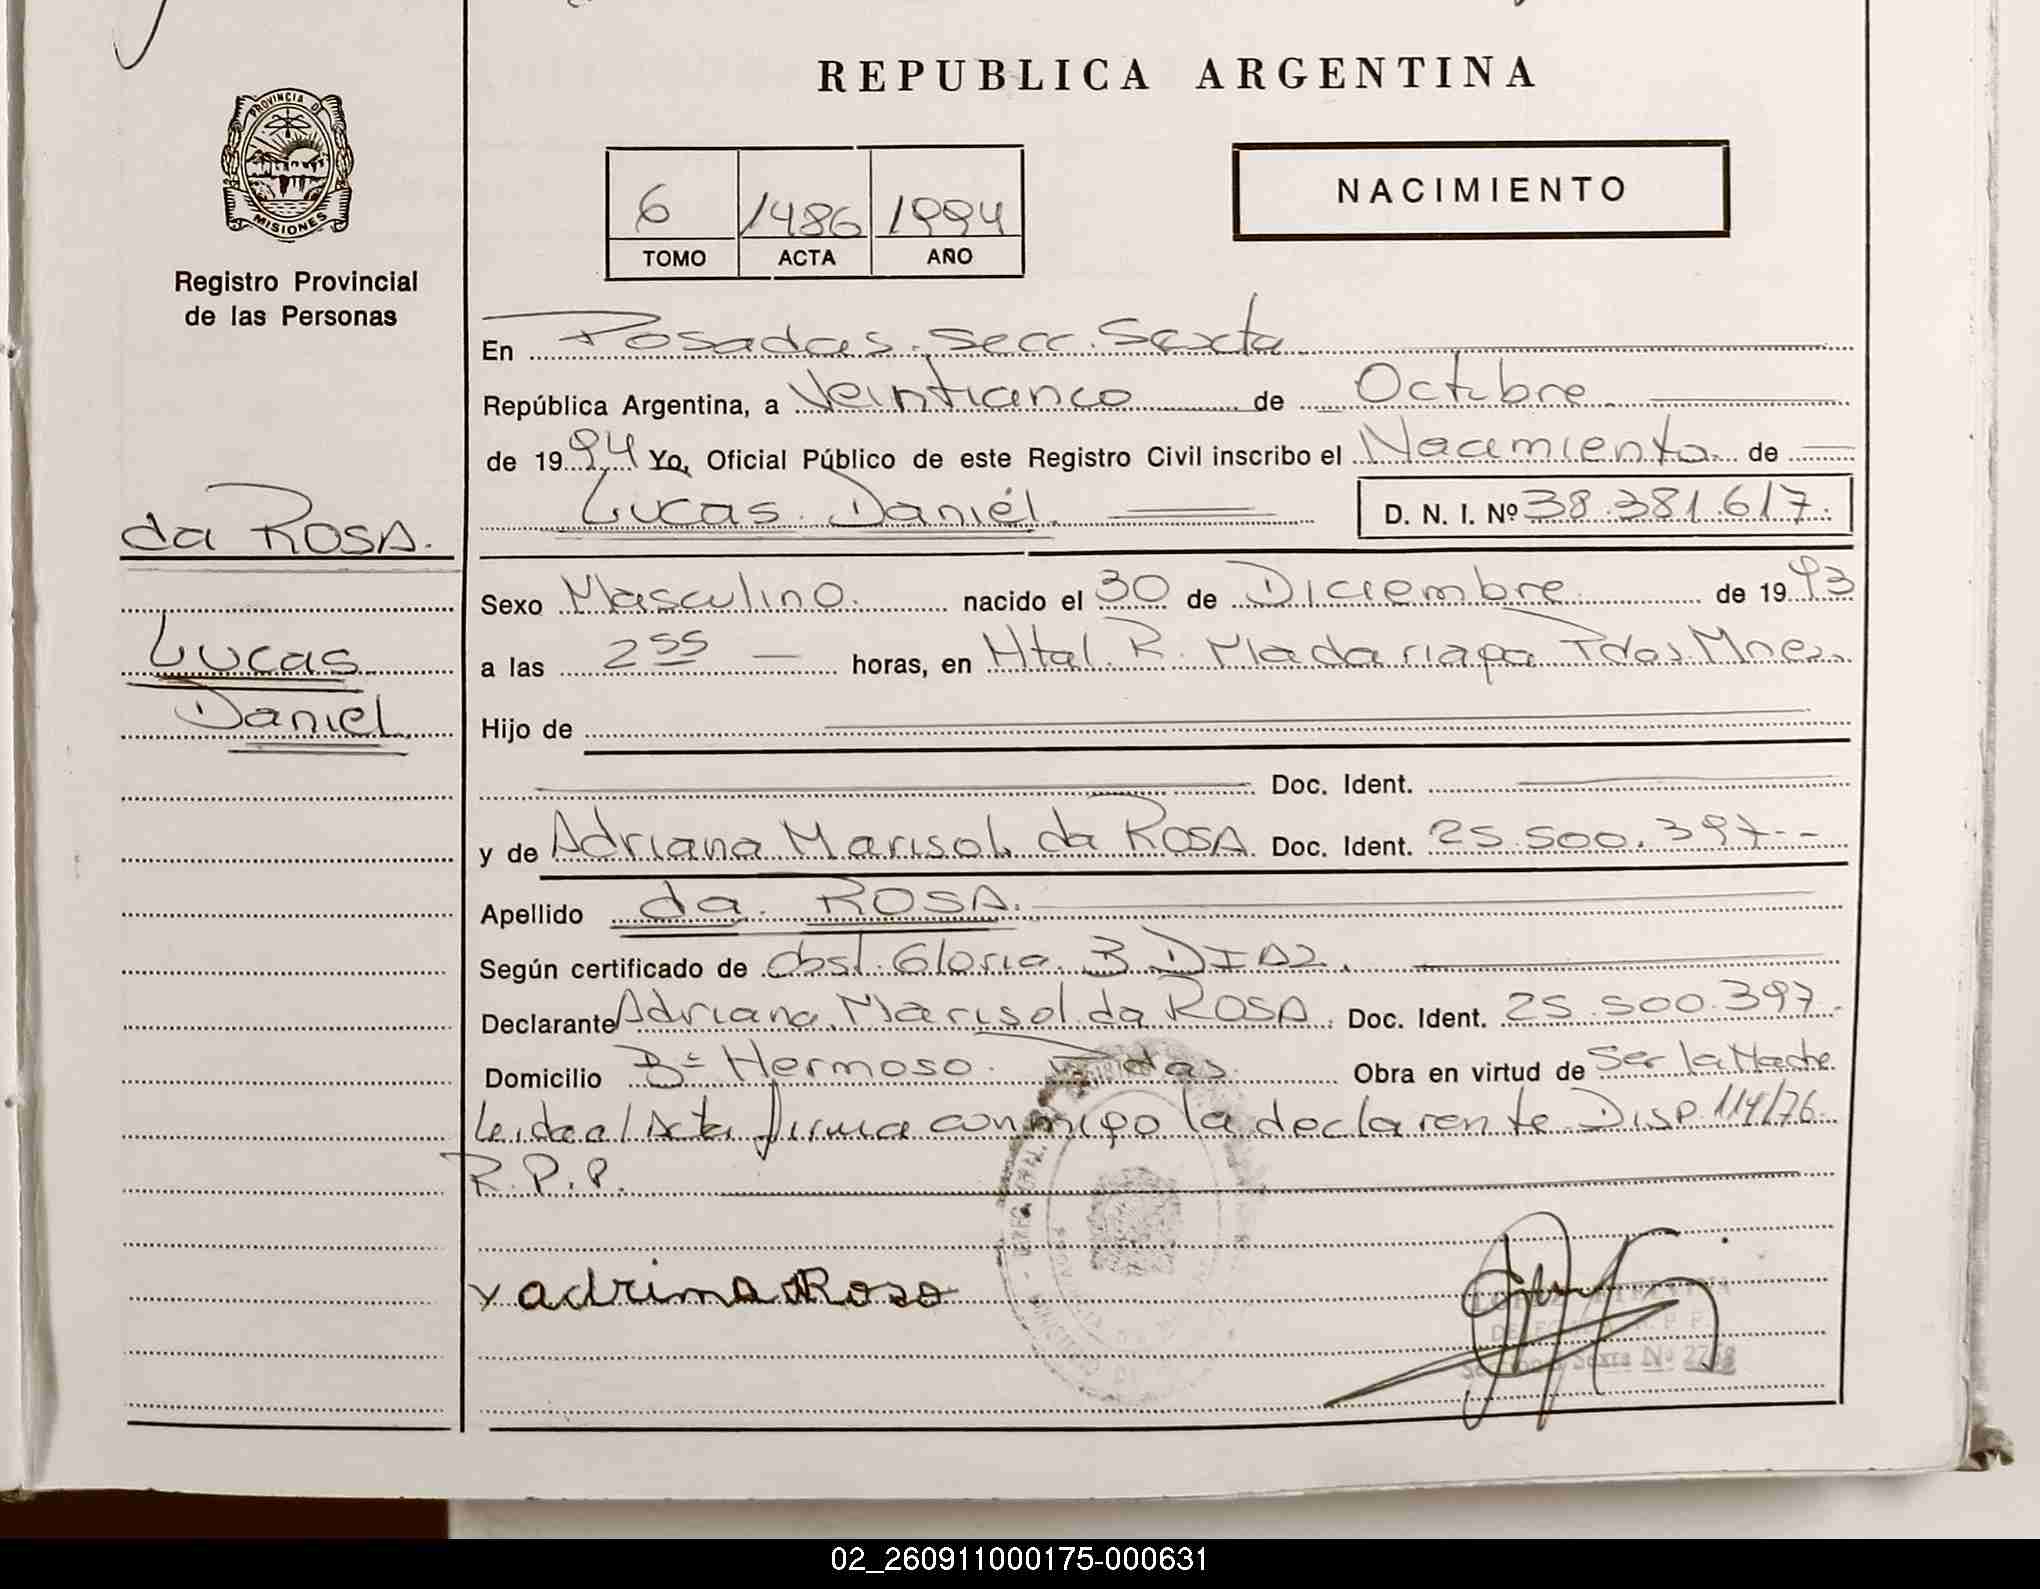 REPUBLICA ARGENTINA
PROVINCIA DE
MISIONES
Registro Provincial
de las Personas
6 1486 1994
TOMO ACTA AÑO
NACIMIENTO
da ROSA.
Lucas
Daniel
En Posadas. Secc. Sexta
República Argentina, a Veinticinco de Octubre
de 1994 Yo, Oficial Público de este Registro Civil inscribo el Nacimiento de
Lucas Daniel D. N. I. Nº 38.381.617.
Sexo Masculino. nacido el 30 de Diciembre de 1993
a las 2 55 horas, en Htal. R. Madariaga Pdas. Mnes.
Hijo de
Doc. Ident.
y de Adriana Marisol da ROSA Doc. Ident. 25.500.397.--
Apellido da ROSA.
Según certificado de Obst. Gloria B DIAZ.
Declarante Adriana Marisol da ROSA. Doc. Ident. 25.500.397.
Domicilio Bº Hermoso. Pdas. Obra en virtud de Ser la Madre
Leida el Acta firma conmigo la declarante Disp. 114/76
R.P.P.
x adriana da Rosa
Sexta Nº
02_260911000175-000631